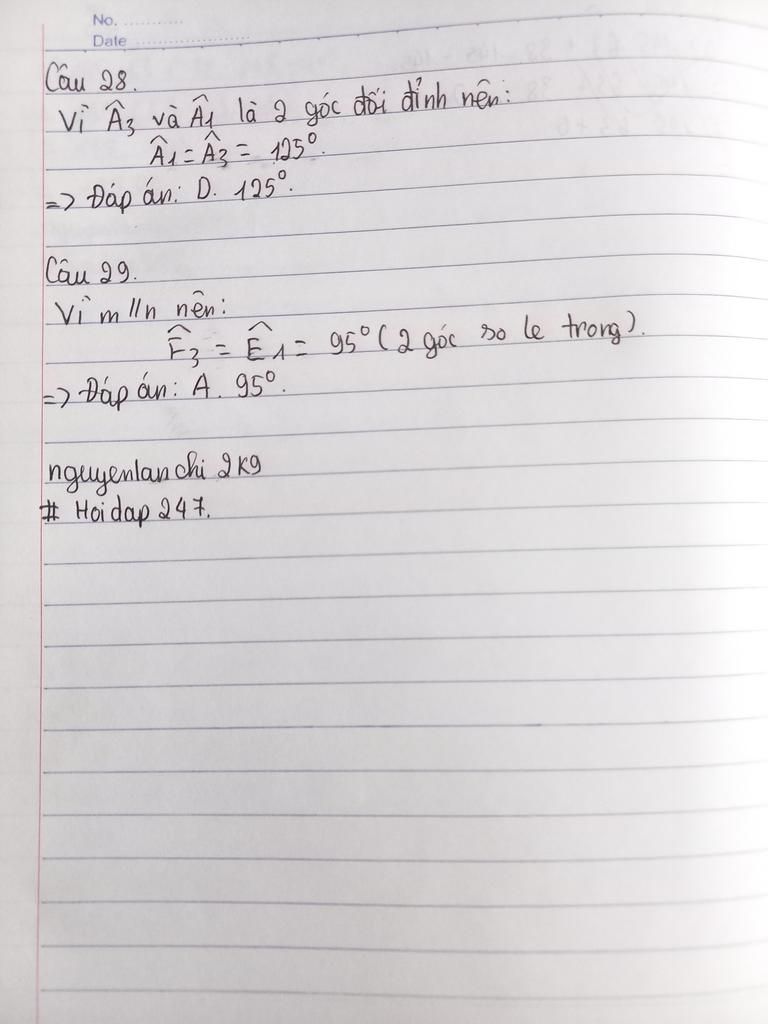 No. ............
Date ........................
Câu 28.
Vì Â3 và Â1 là 2 góc đối đỉnh nên:
Â1 = Â3 = 125°.
=> Đáp án: D. 125°.
Câu 29.
Vì m // n nên:
F̂3 = Ê1 = 95° (2 góc so le trong).
=> Đáp án: A. 95°.
nguyenlanchi 2k9
# Hoidap 247.